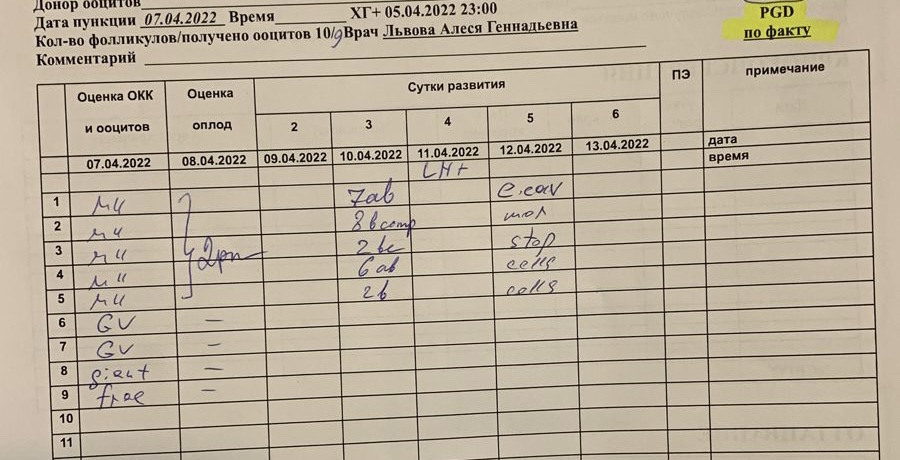 Донор ооцитов
Дата пункции 07.04.2022 Время ХГ+ 05.04.2022 23:00
Кол-во фолликулов/получено ооцитов 10/9 Врач Львова Алеся Геннадьевна
Комментарий
PGD
по факту
Оценка ОКК и ооцитов Оценка оплод Сутки развития ПЭ примечание
2 3 4 5 6
07.04.2022 08.04.2022 09.04.2022 10.04.2022 11.04.2022 12.04.2022 13.04.2022 дата
время
LH+
1 MII 7ab e.cav
2 MII 8b comp mor
3 MII 2pn 2bc stop
4 MII 6ab cells
5 MII 2b cells
6 GV —
7 GV —
8 giant —
9 frag —
10
11